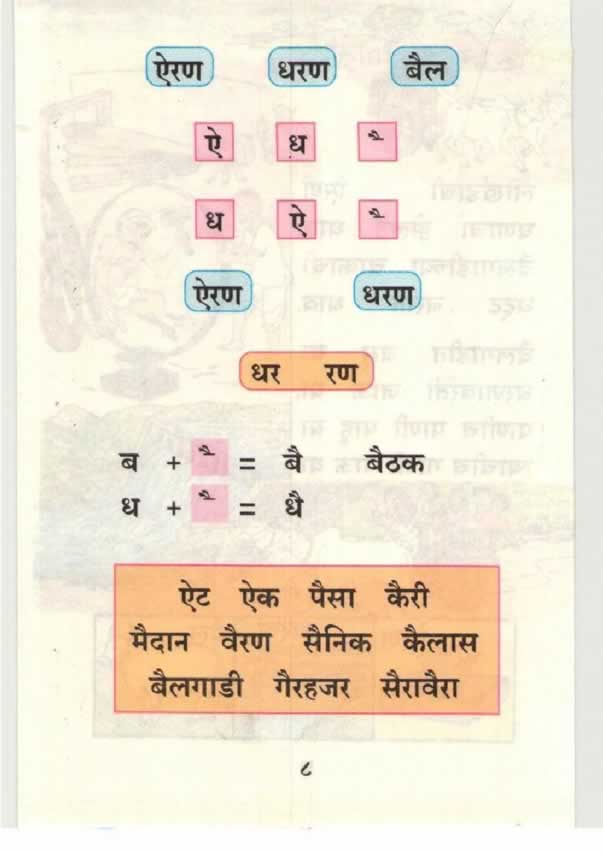 ऐरण धरण बैल
ऐ ध ै
ध ऐ ै
ऐरण धरण
धर रण
ब + ै = बै बैठक
ध + ै = धै
ऐट ऐक पैसा कैरी
मैदान वैरण सैनिक कैलास
बैलगाडी गैरहजर सैरावैरा
८